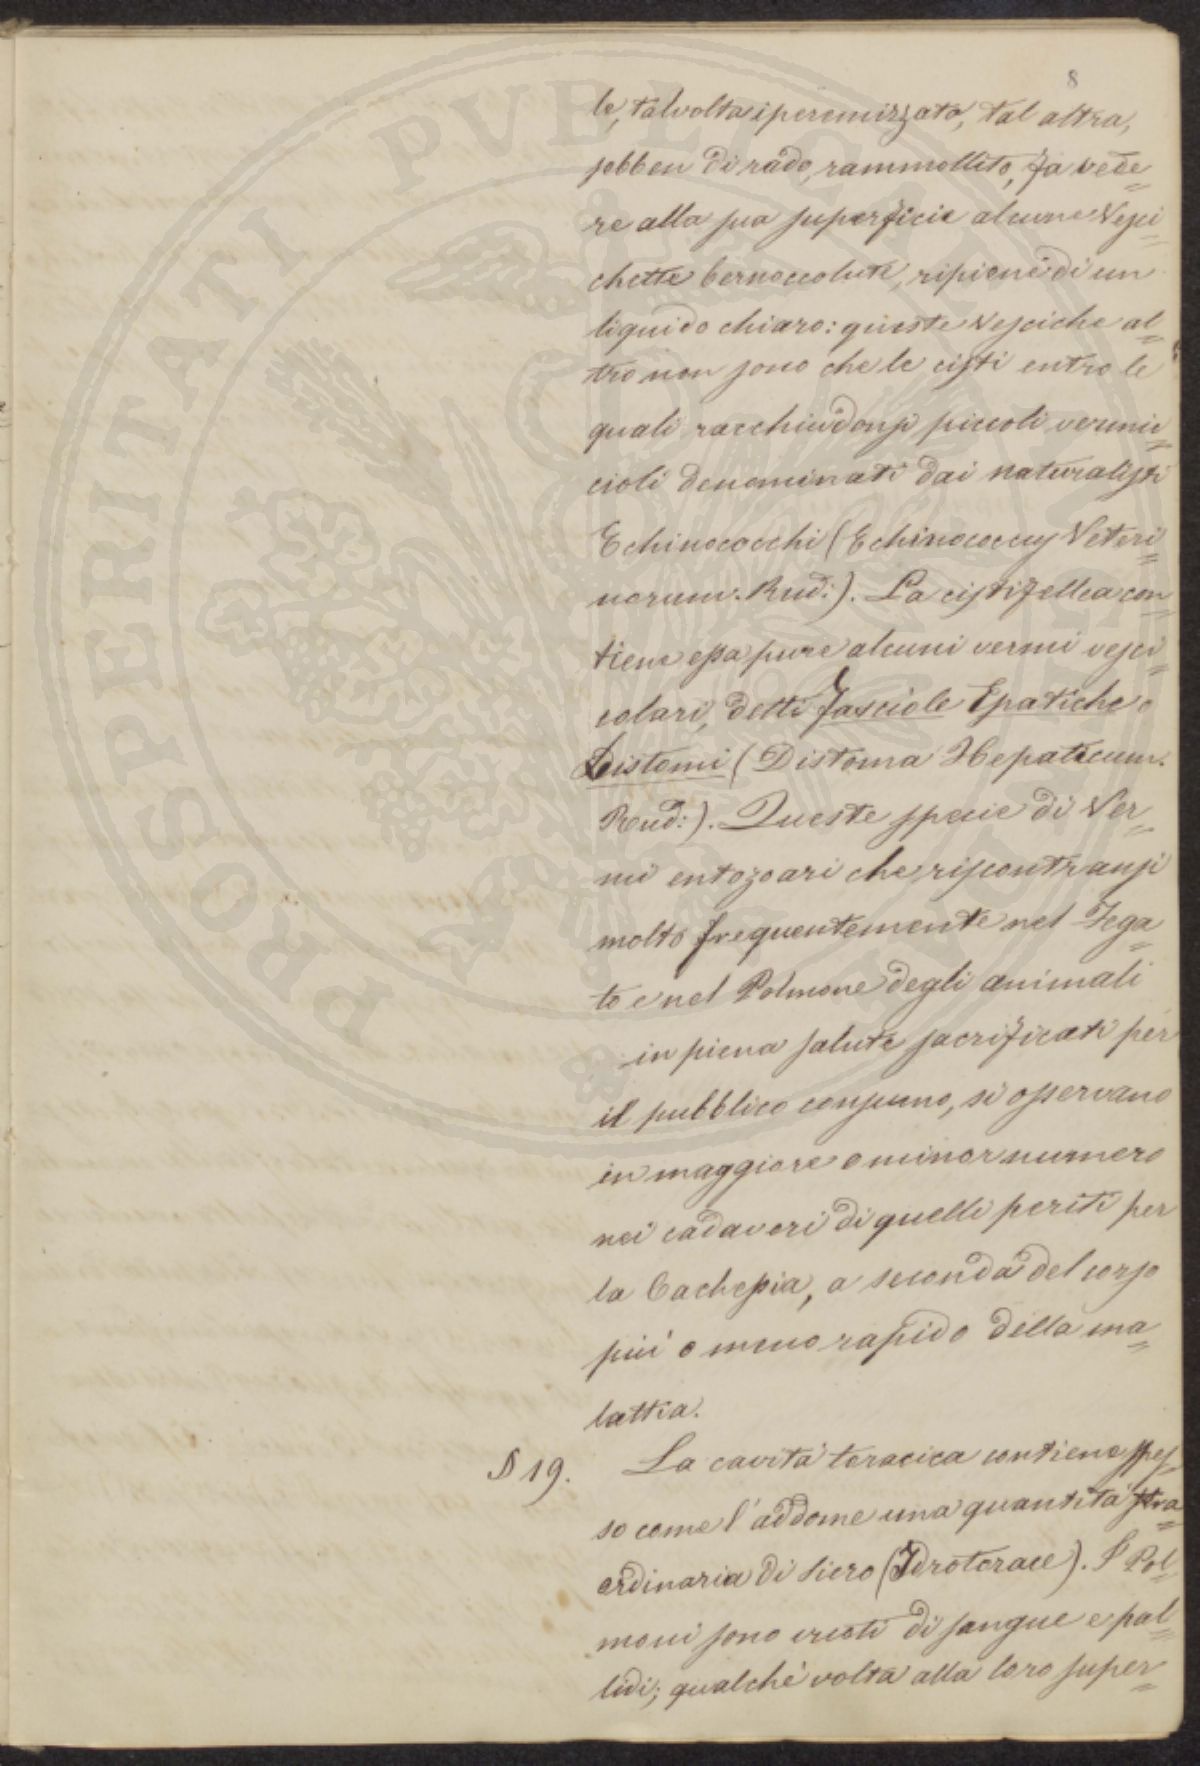 8
le, talvolta iperemizzato, tal altra,
sebben di rado, rammollito, fa vede=
re alla sua superficie alcune Vesci=
chette bernoccolute, ripiene di un
liquido chiaro: queste Vesciche al=
tro non sono che le cisti entro le
quali racchiudonsi piccoli vermic=
cioli denominati dai naturalisti
Echinococchi (Echinococcus Veteri=
norum. Rud:). La cistifellea con=
tiene essa pure alcuni vermi vesci=
colari, detti Fasciole Epatiche o
Distomi (Distoma Hepaticum.
Rud:). Queste specie di Ver=
mi entozoari che riscontransi
molto frequentemente nel Fega=
to e nel Polmone degli animali
in piena salute sacrificati per
il pubblico consumo, si osservano
in maggiore o minor numero
nei cadaveri di quelli periti per
la Cachessia, a seconda del corso
più o meno rapido della ma=
lattia.
§ 19. La cavità toracica contiene spes=
so come l'addome una quantità stra=
ordinaria di siero (Idrotorace). I Pol=
moni sono vuoti di sangue e pal=
lidi; qualche volta alla loro super=
PROSPERITATI PVBLICAE